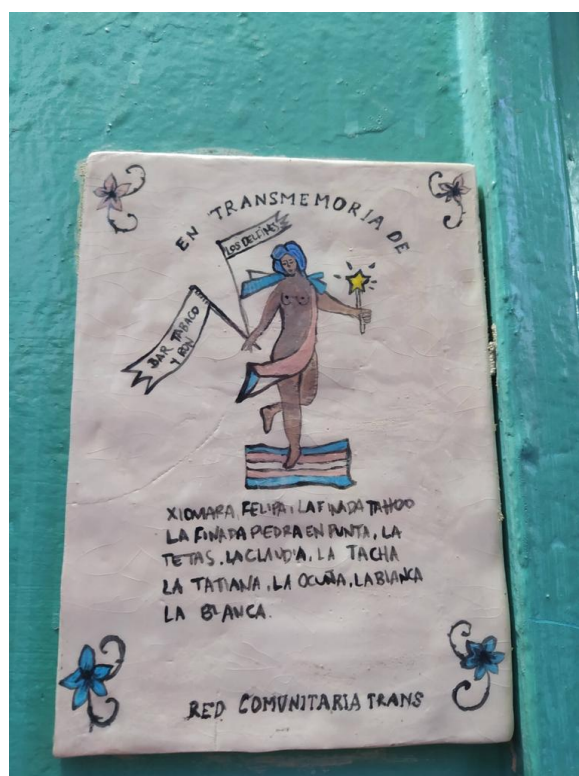 EN TRANSMEMORIA DE
LOS DELFINES
BAR TABACO
Y RON
XIOMARA, FELIPA, LA FINADA TAHOO
LA FINADA PIEDRA EN PUNTA, LA
TETAS, LA CLAUDIA, LA TACHA
LA TATIANA, LA OCUÑA, LA BIANCA
LA BLANCA.
RED COMUNITARIA TRANS